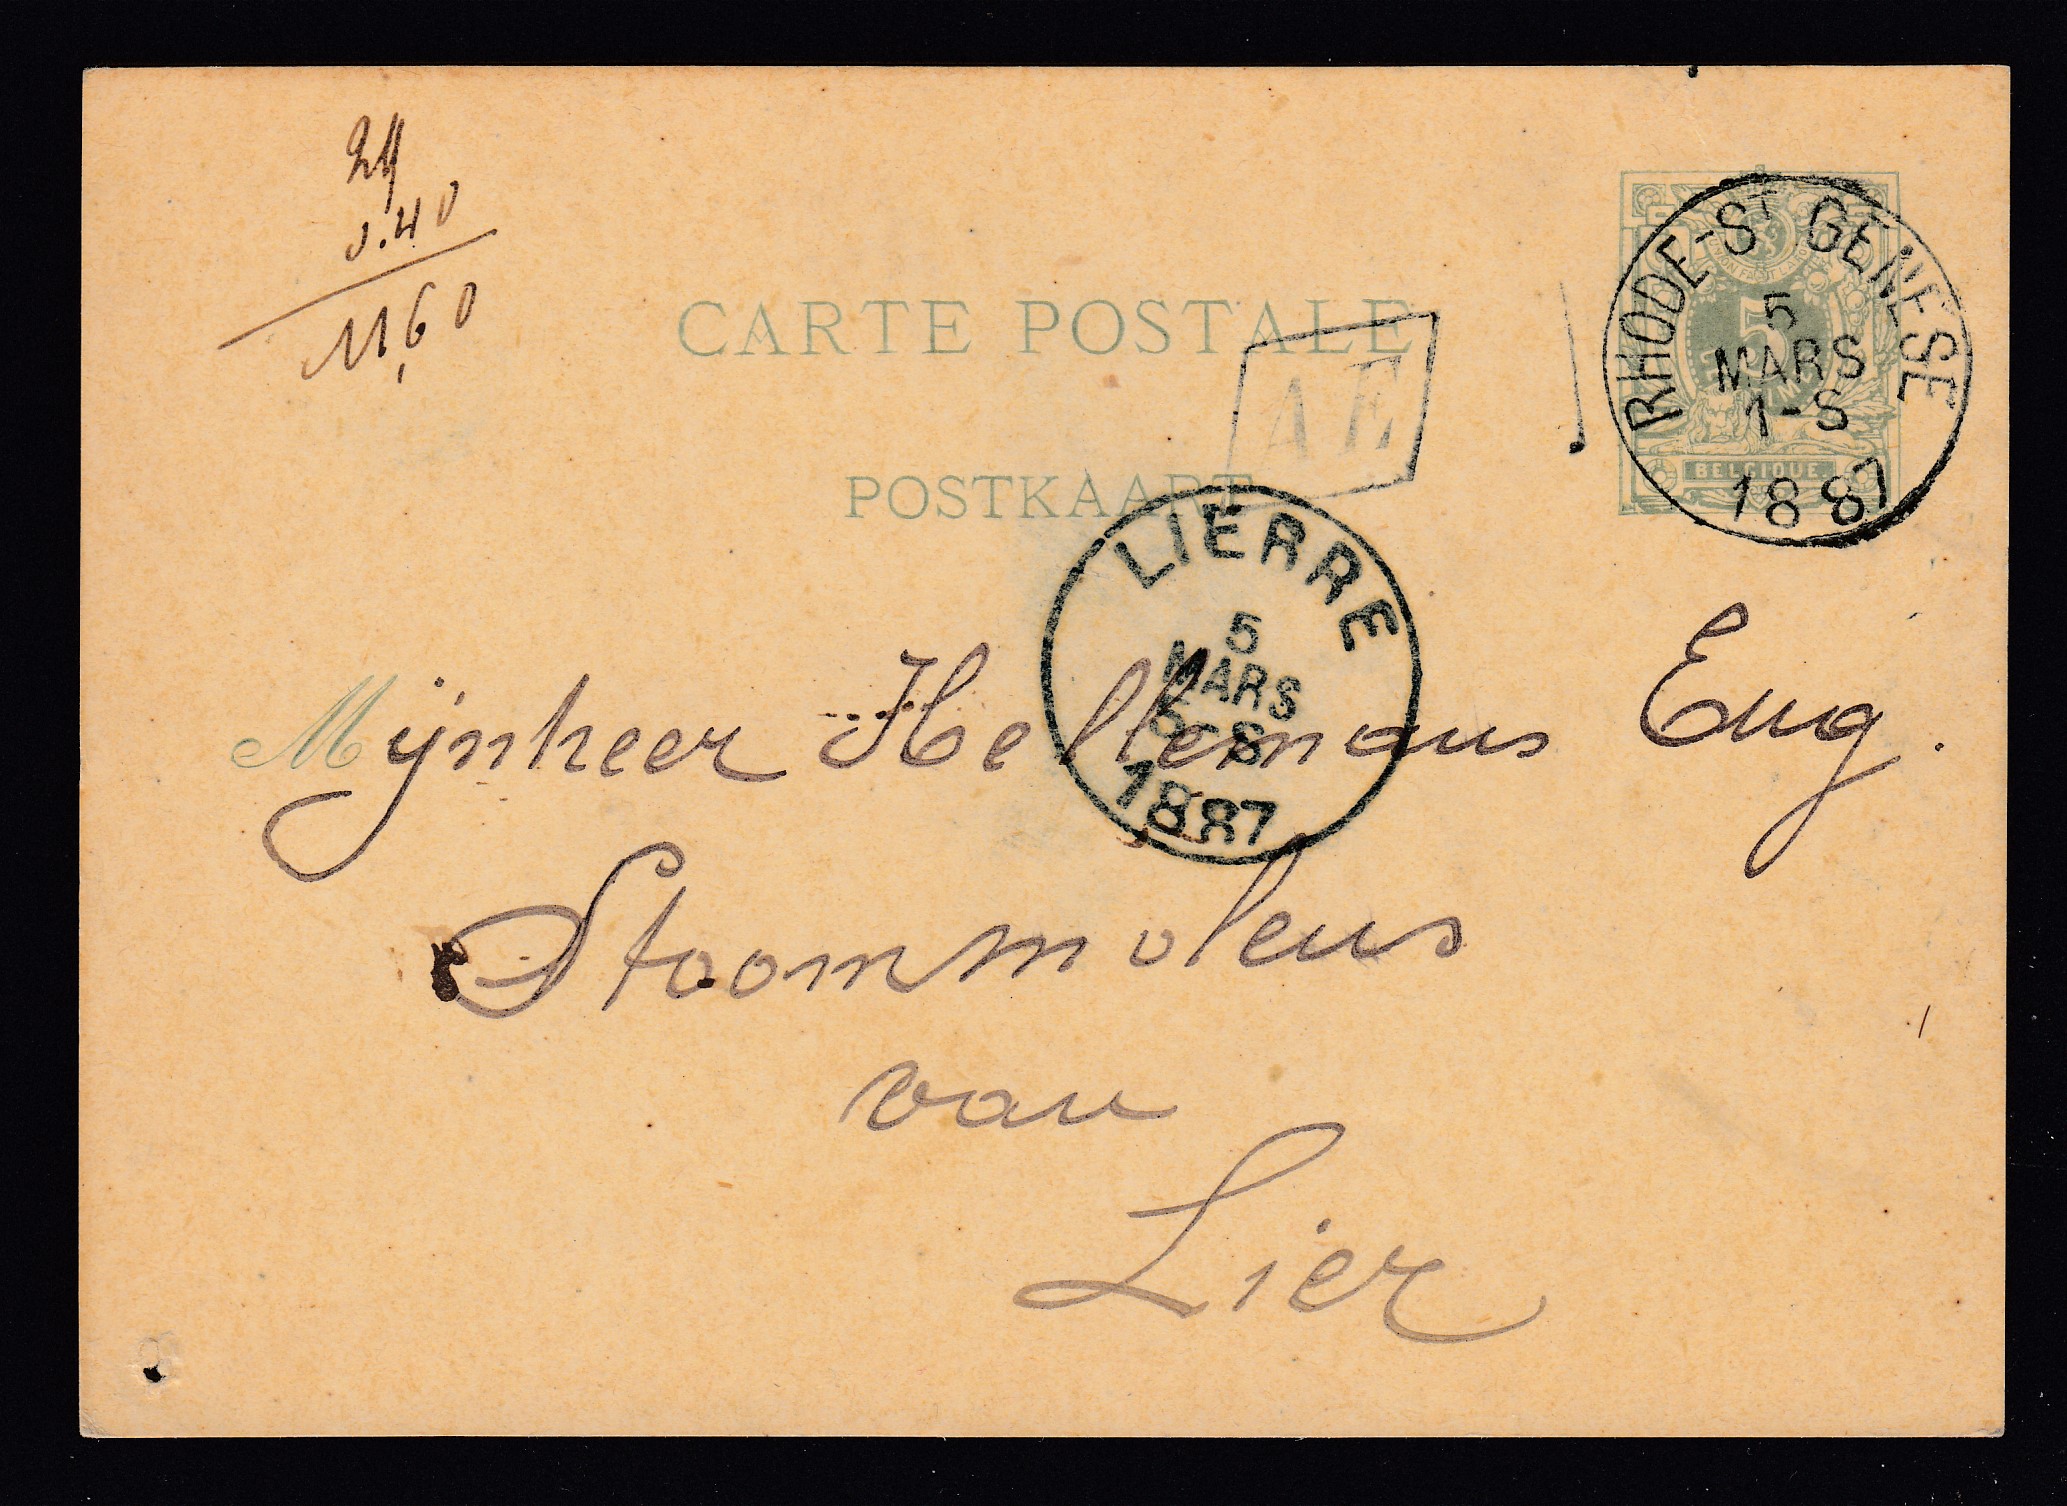 0.40
11,60
CARTE POSTALE
POSTKAART
AE
RHODE-ST GENESE
5
MARS
1-S
1887
5
BELGIQUE
LIERRE
5
MARS
5-S
1887
Mijnheer Hellemans Eug.
Stoommolens
van
Lier